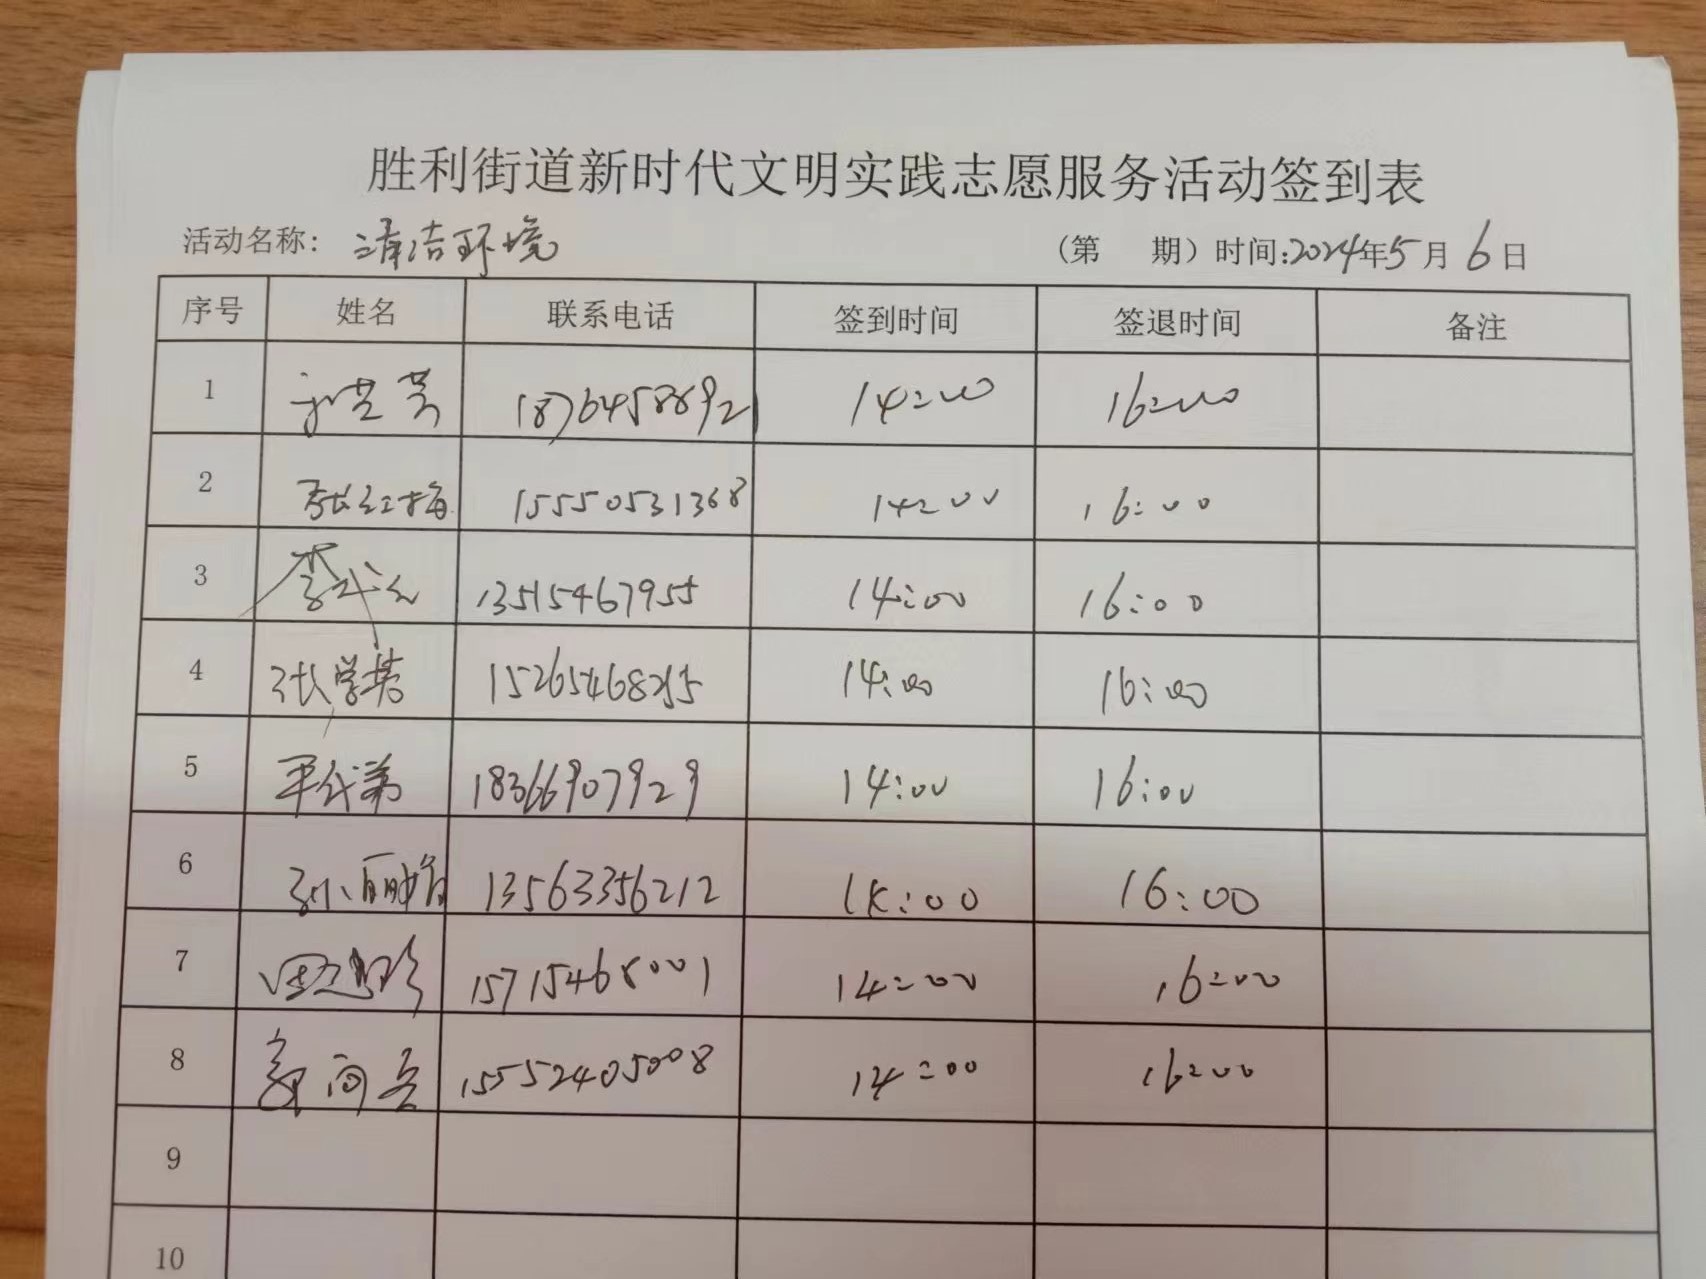 胜利街道新时代文明实践志愿服务活动签到表
活动名称: 清洁环境 (第 期) 时间:2024年5月6日
序号 姓名 联系电话 签到时间 签退时间 备注
1 18764588692 14:00 16:00
2 张红梅 15550531368 14:00 16:00
3 13515467955 14:00 16:00
4 张学芬 15265468215 14:00 16:00
5 18366907929 14:00 16:00
6 13563356212 14:00 16:00
7 15715468001 14:00 16:00
8 15552405008 14:00 16:00
9
10